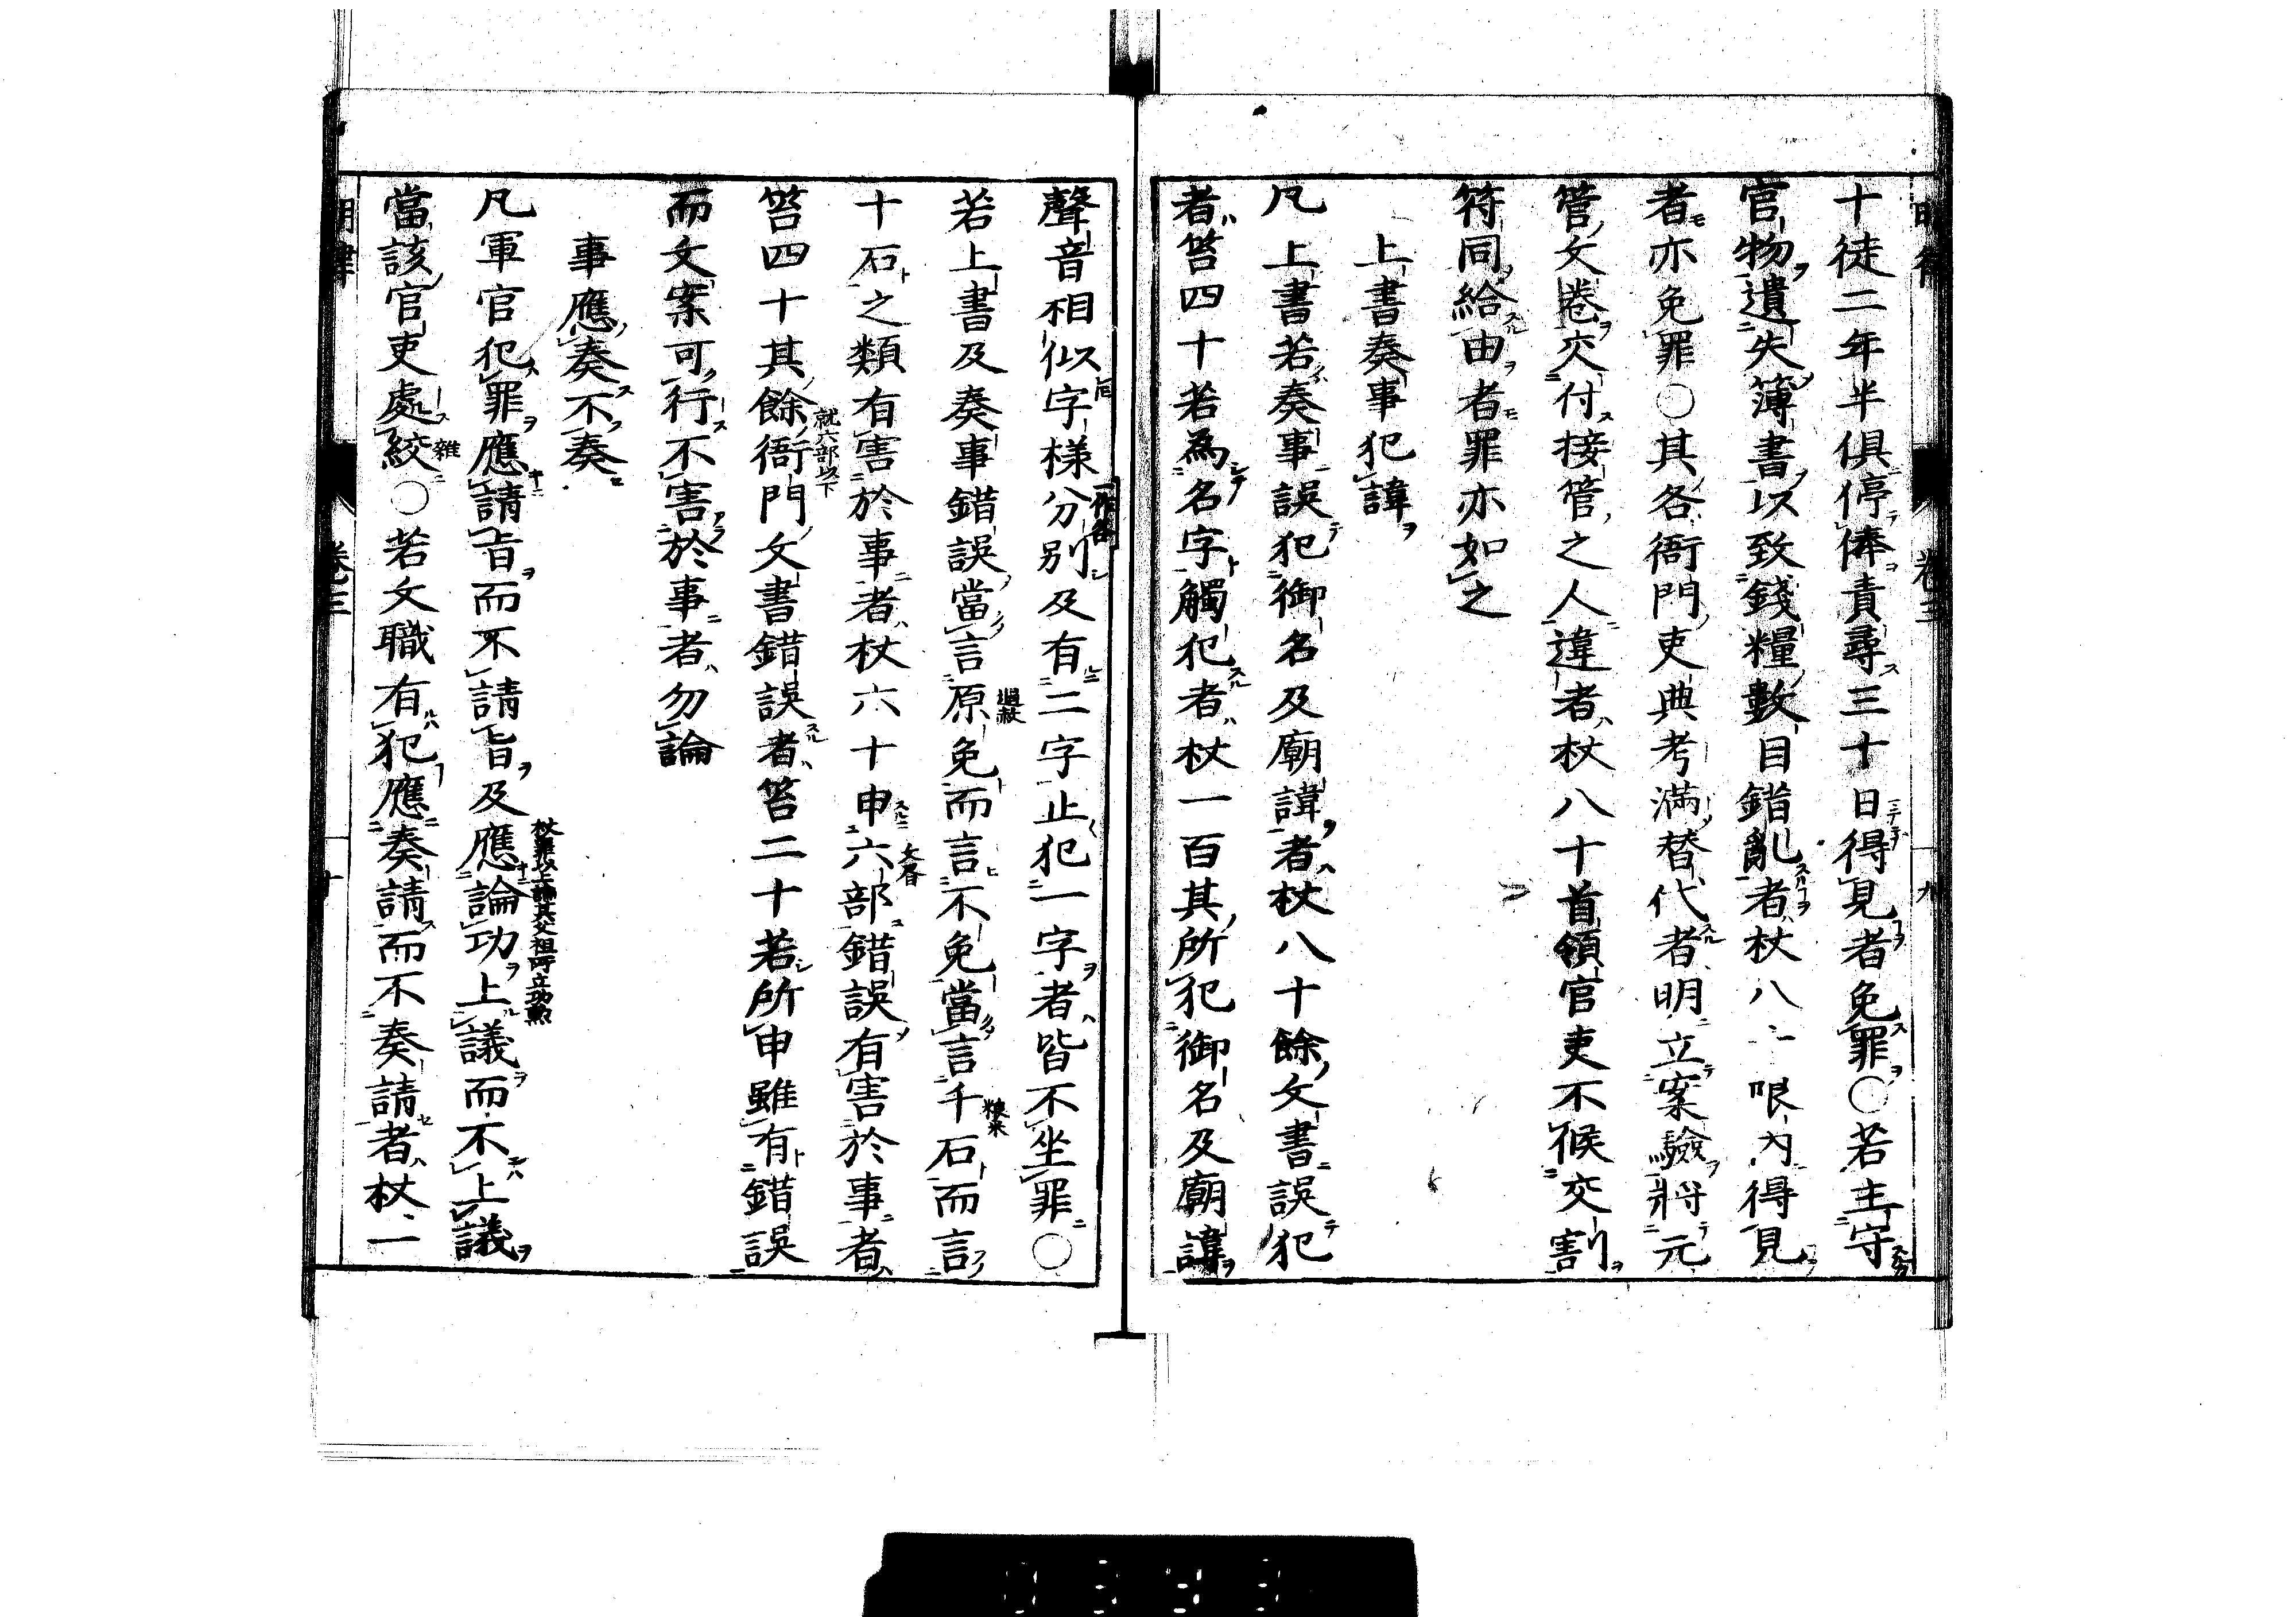 十徒二年半俱停俸責尋三十日得見者免罪○若主守
官物遺失簿書以致錢糧數目錯亂者杖八十限內得見
者亦免罪○其各衙門吏典考滿替代者明立案驗將元
管文卷交付接管之人違者杖八十首領官吏不候交割
符同給由者罪亦如之
上書奏事犯諱
凡上書若奏事誤犯御名及廟諱者杖八十餘文書誤犯
者笞四十若為名字觸犯者杖一百其所犯御名及廟諱
聲音相似字樣分別及有二字止犯一字者皆不坐罪○
若上書及奏事錯誤當言原免而言不免當言千石而言
十石之類有害於事者杖六十申六部錯誤有害於事者
笞四十其餘衙門文書錯誤者笞二十若所申雖有錯誤
就六部以下
而文案可行不害於事者勿論
事應奏不奏
凡軍官犯罪應請旨而不請旨及應論功上議而不上議
杖罪以上論其父祖所立功勲
當該官吏處絞○若文職有犯應奏請而不奏請者杖一
雜
明律 卷三 九
明律 卷三 十